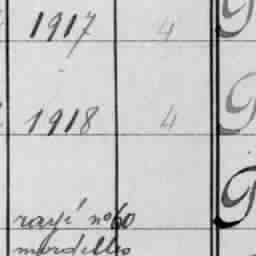 1917 4
1918 4
rayé nº 60